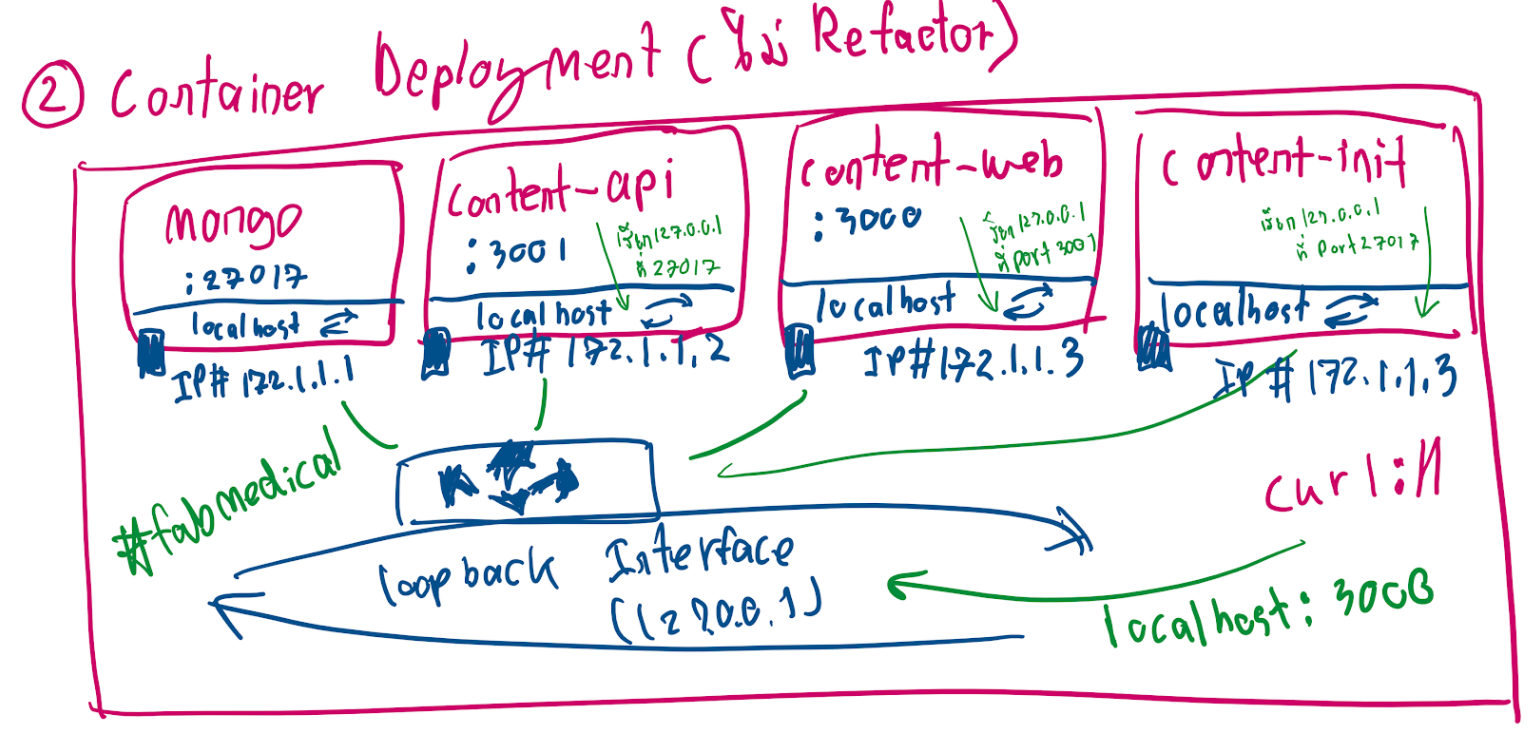 ② Container Deployment (ไม่ Refactor)
mongo
:27017
localhost
IP# 172.1.1.1
content-api
:3001
เรียก 127.0.0.1
ที่ 27017
localhost
IP# 172.1.1.2
content-web
:3000
เรียก 127.0.0.1
ที่ port 3001
localhost
IP# 172.1.1.3
content-init
เรียก 127.0.0.1
ที่ port 27017
localhost
IP # 172.1.1.3
#fabmedical
loopback Interface
(127.0.0.1)
localhost: 3000